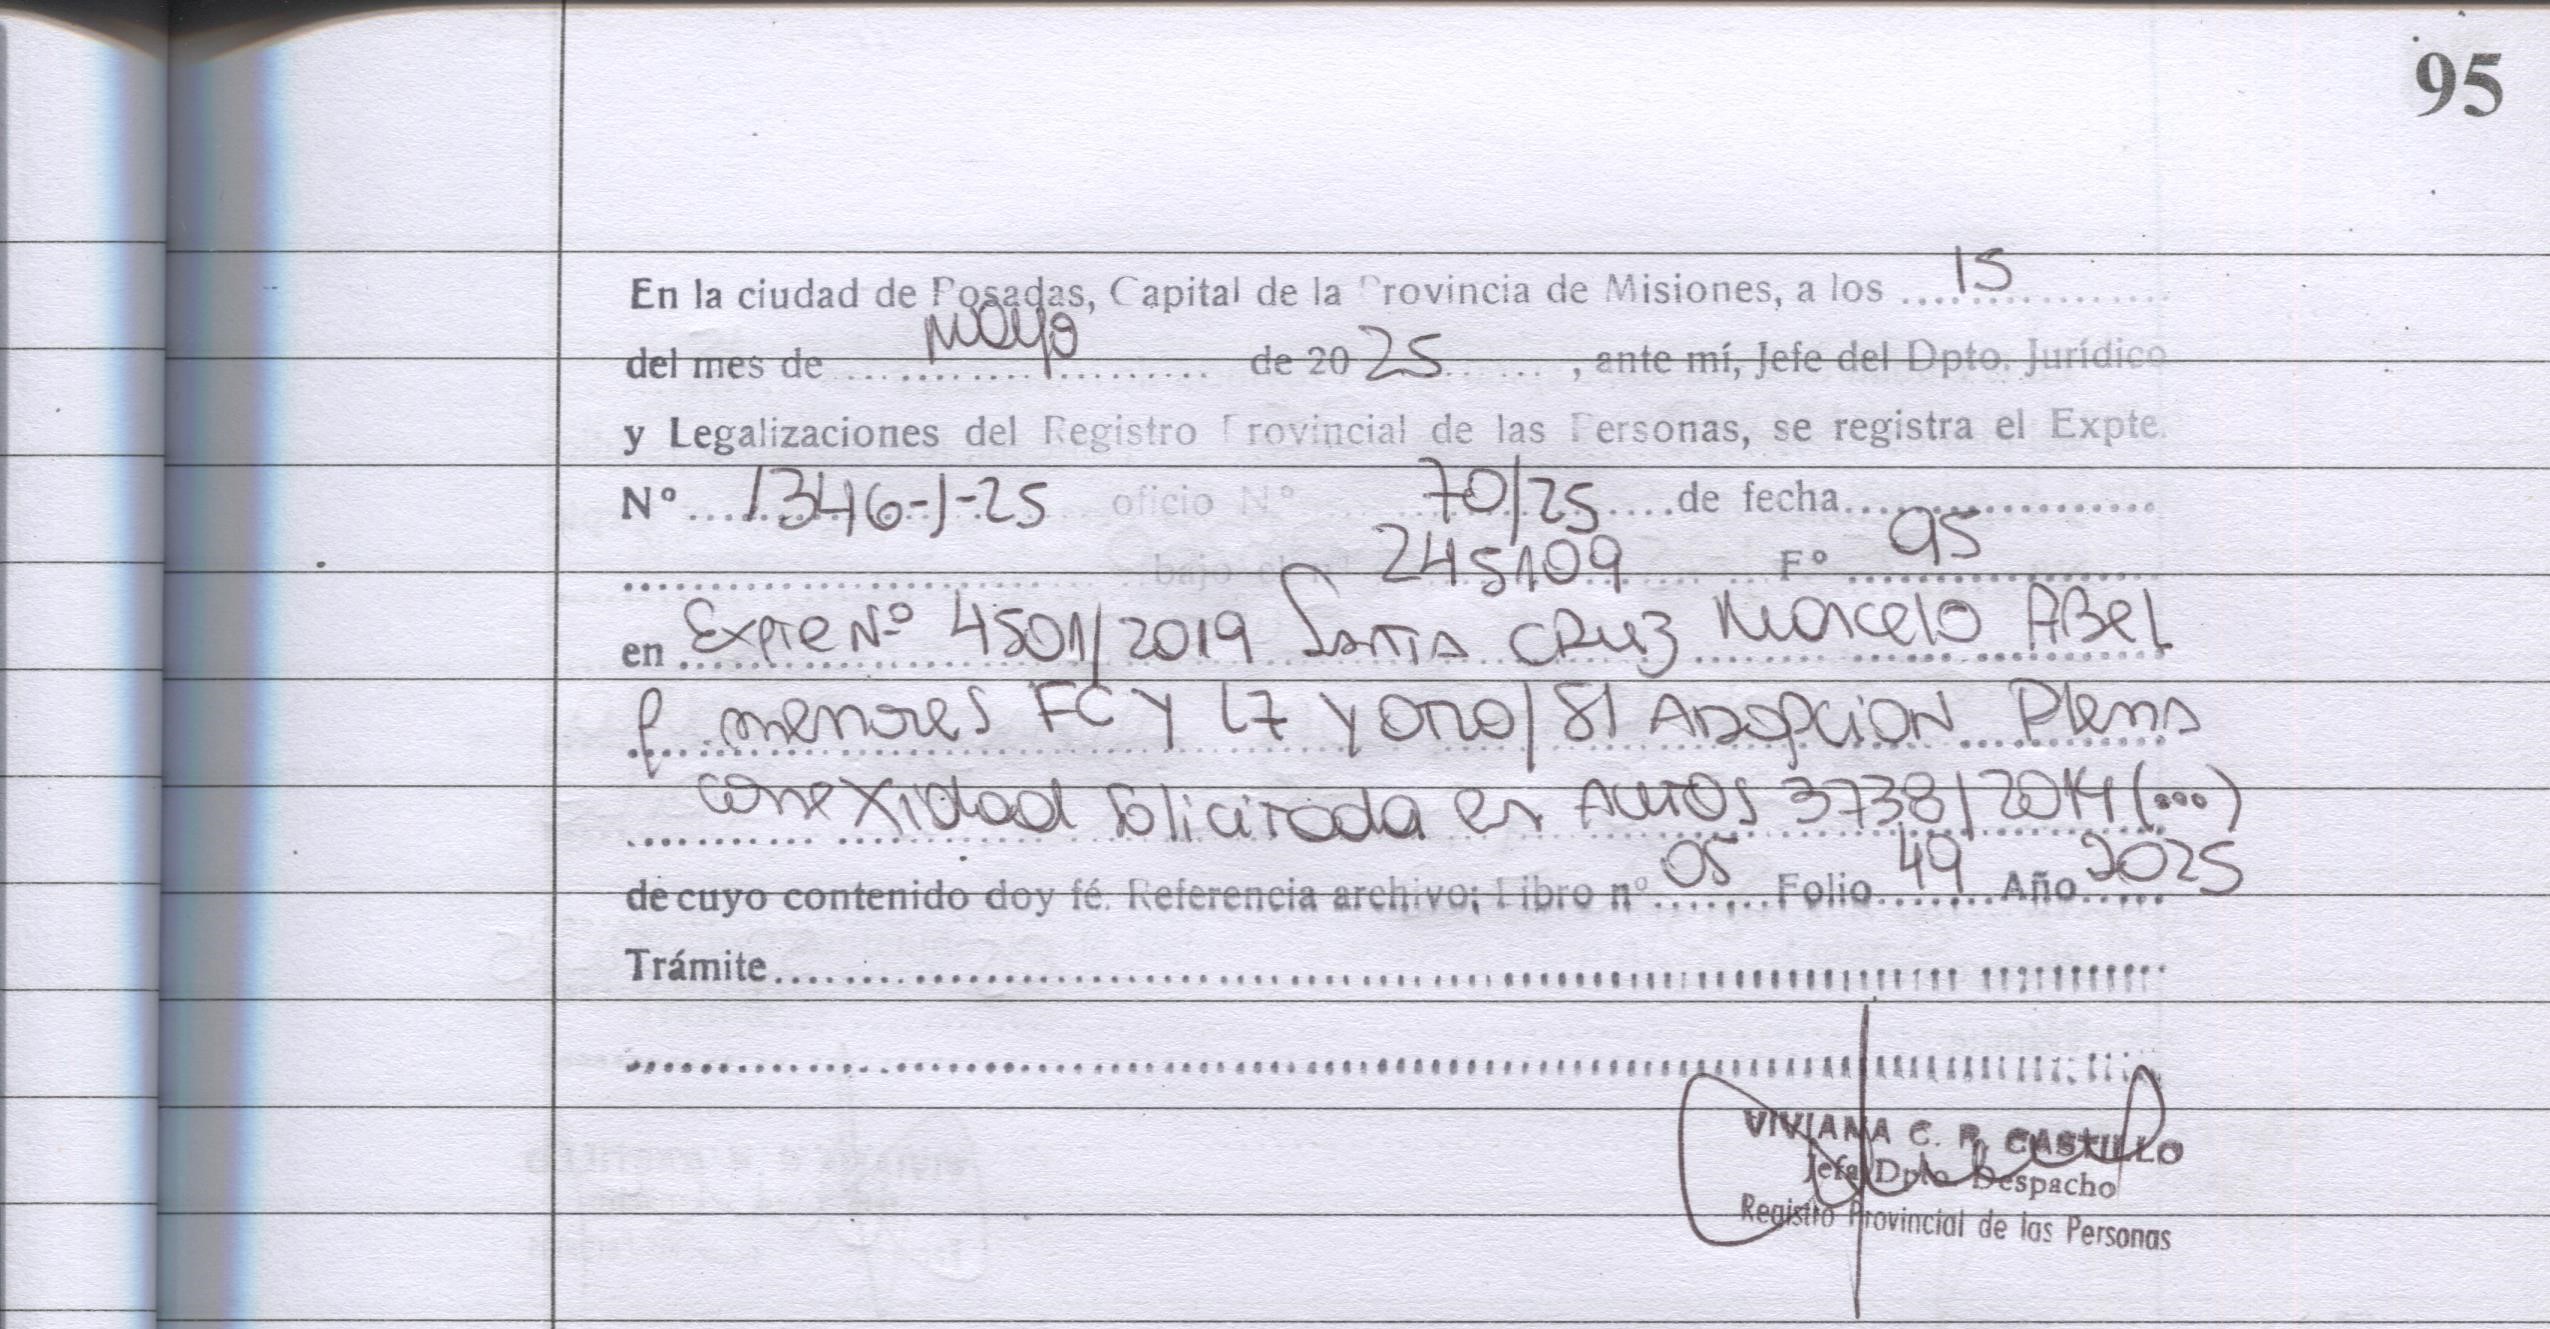 95
En la ciudad de Posadas, Capital de la Provincia de Misiones, a los 15
del mes de mayo de 2025, ante mí, Jefe del Dpto. Jurídico
y Legalizaciones del Registro Provincial de las Personas, se registra el Expte.
Nº 1346-J-25 oficio Nº 70/25 de fecha
bajo el Nº 245109 Fº 95
en Expte Nº 4501/2019 Santa CRUZ Marcelo ABel
P menores FC Y LZ Y OTRO/ S/ ADOPCION Plena
conexidad Solicitada en AUTOS 3738/2014 (...)
de cuyo contenido doy fé. Referencia archivo; Libro nº 05 Folio 49 Año 2025
Trámite
VIVIANA C. R. CASTILLO
Jefa Dpto Despacho
Registro Provincial de las Personas